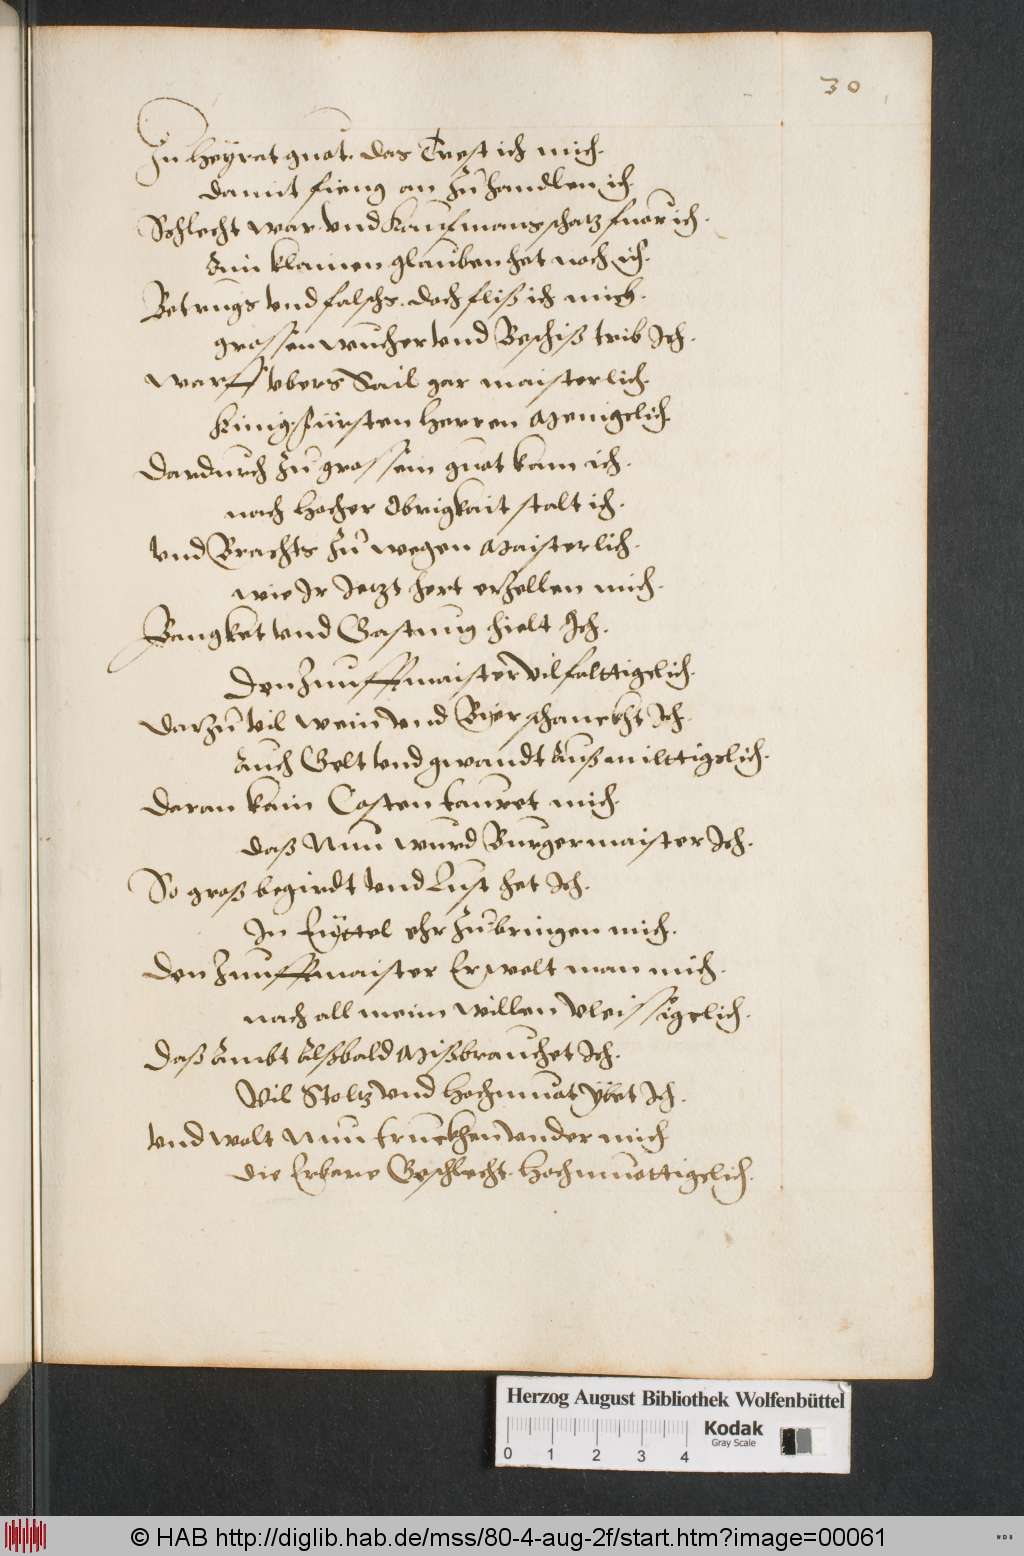 30
Zu Heyrat guot. das Trest ich mich.
damit fieng an zu handlen ich
Schlecht war. vnd Kaufmans schatz fuor ich.
Ain klainen glauben het noch ich.
Betrugs vnd falschs. doch fliß ich mich.
grossen wucher vnd Beschiß trib Ich.
warff vbers Sail gar maisterlich.
Künig, Fürsten Herren Menigclich
dardurch zu grossem guot kam ich.
nach hocher Obrigkait stalt ich.
vnd Brachts zu wegen Maisterlich.
wie Ir Jetzt hert erzellen mich.
Pangket vnd Gastung hielt Ich.
den Zunfftmaister vilfalttigclich.
darzu vil wein vnd Byer schanckht Ich
Auch Gelt vnd gwandt Auß milttigclich.
daran kain Costen tauret mich.
daß Nun wurd Burgermaister Ich.
So groß begirdt vnd Lust het Ich.
In Eyttel ehr zubringen mich.
den Zunfftmaister Erwelt man mich.
nach all meim willen vleissigclich.
daß Ambt Alßbald Mißbrauchet Ich.
Vil Stoltz vnd Hochmuot ybet Ich.
vnd wolt Nun truckhen vnder mich
die Erbare Geschlecht. Hochmuottigclich.
Herzog August Bibliothek Wolfenbüttel
Kodak
Gray Scale
0 1 2 3 4
© HAB http://diglib.hab.de/mss/80-4-aug-2f/start.htm?image=00061